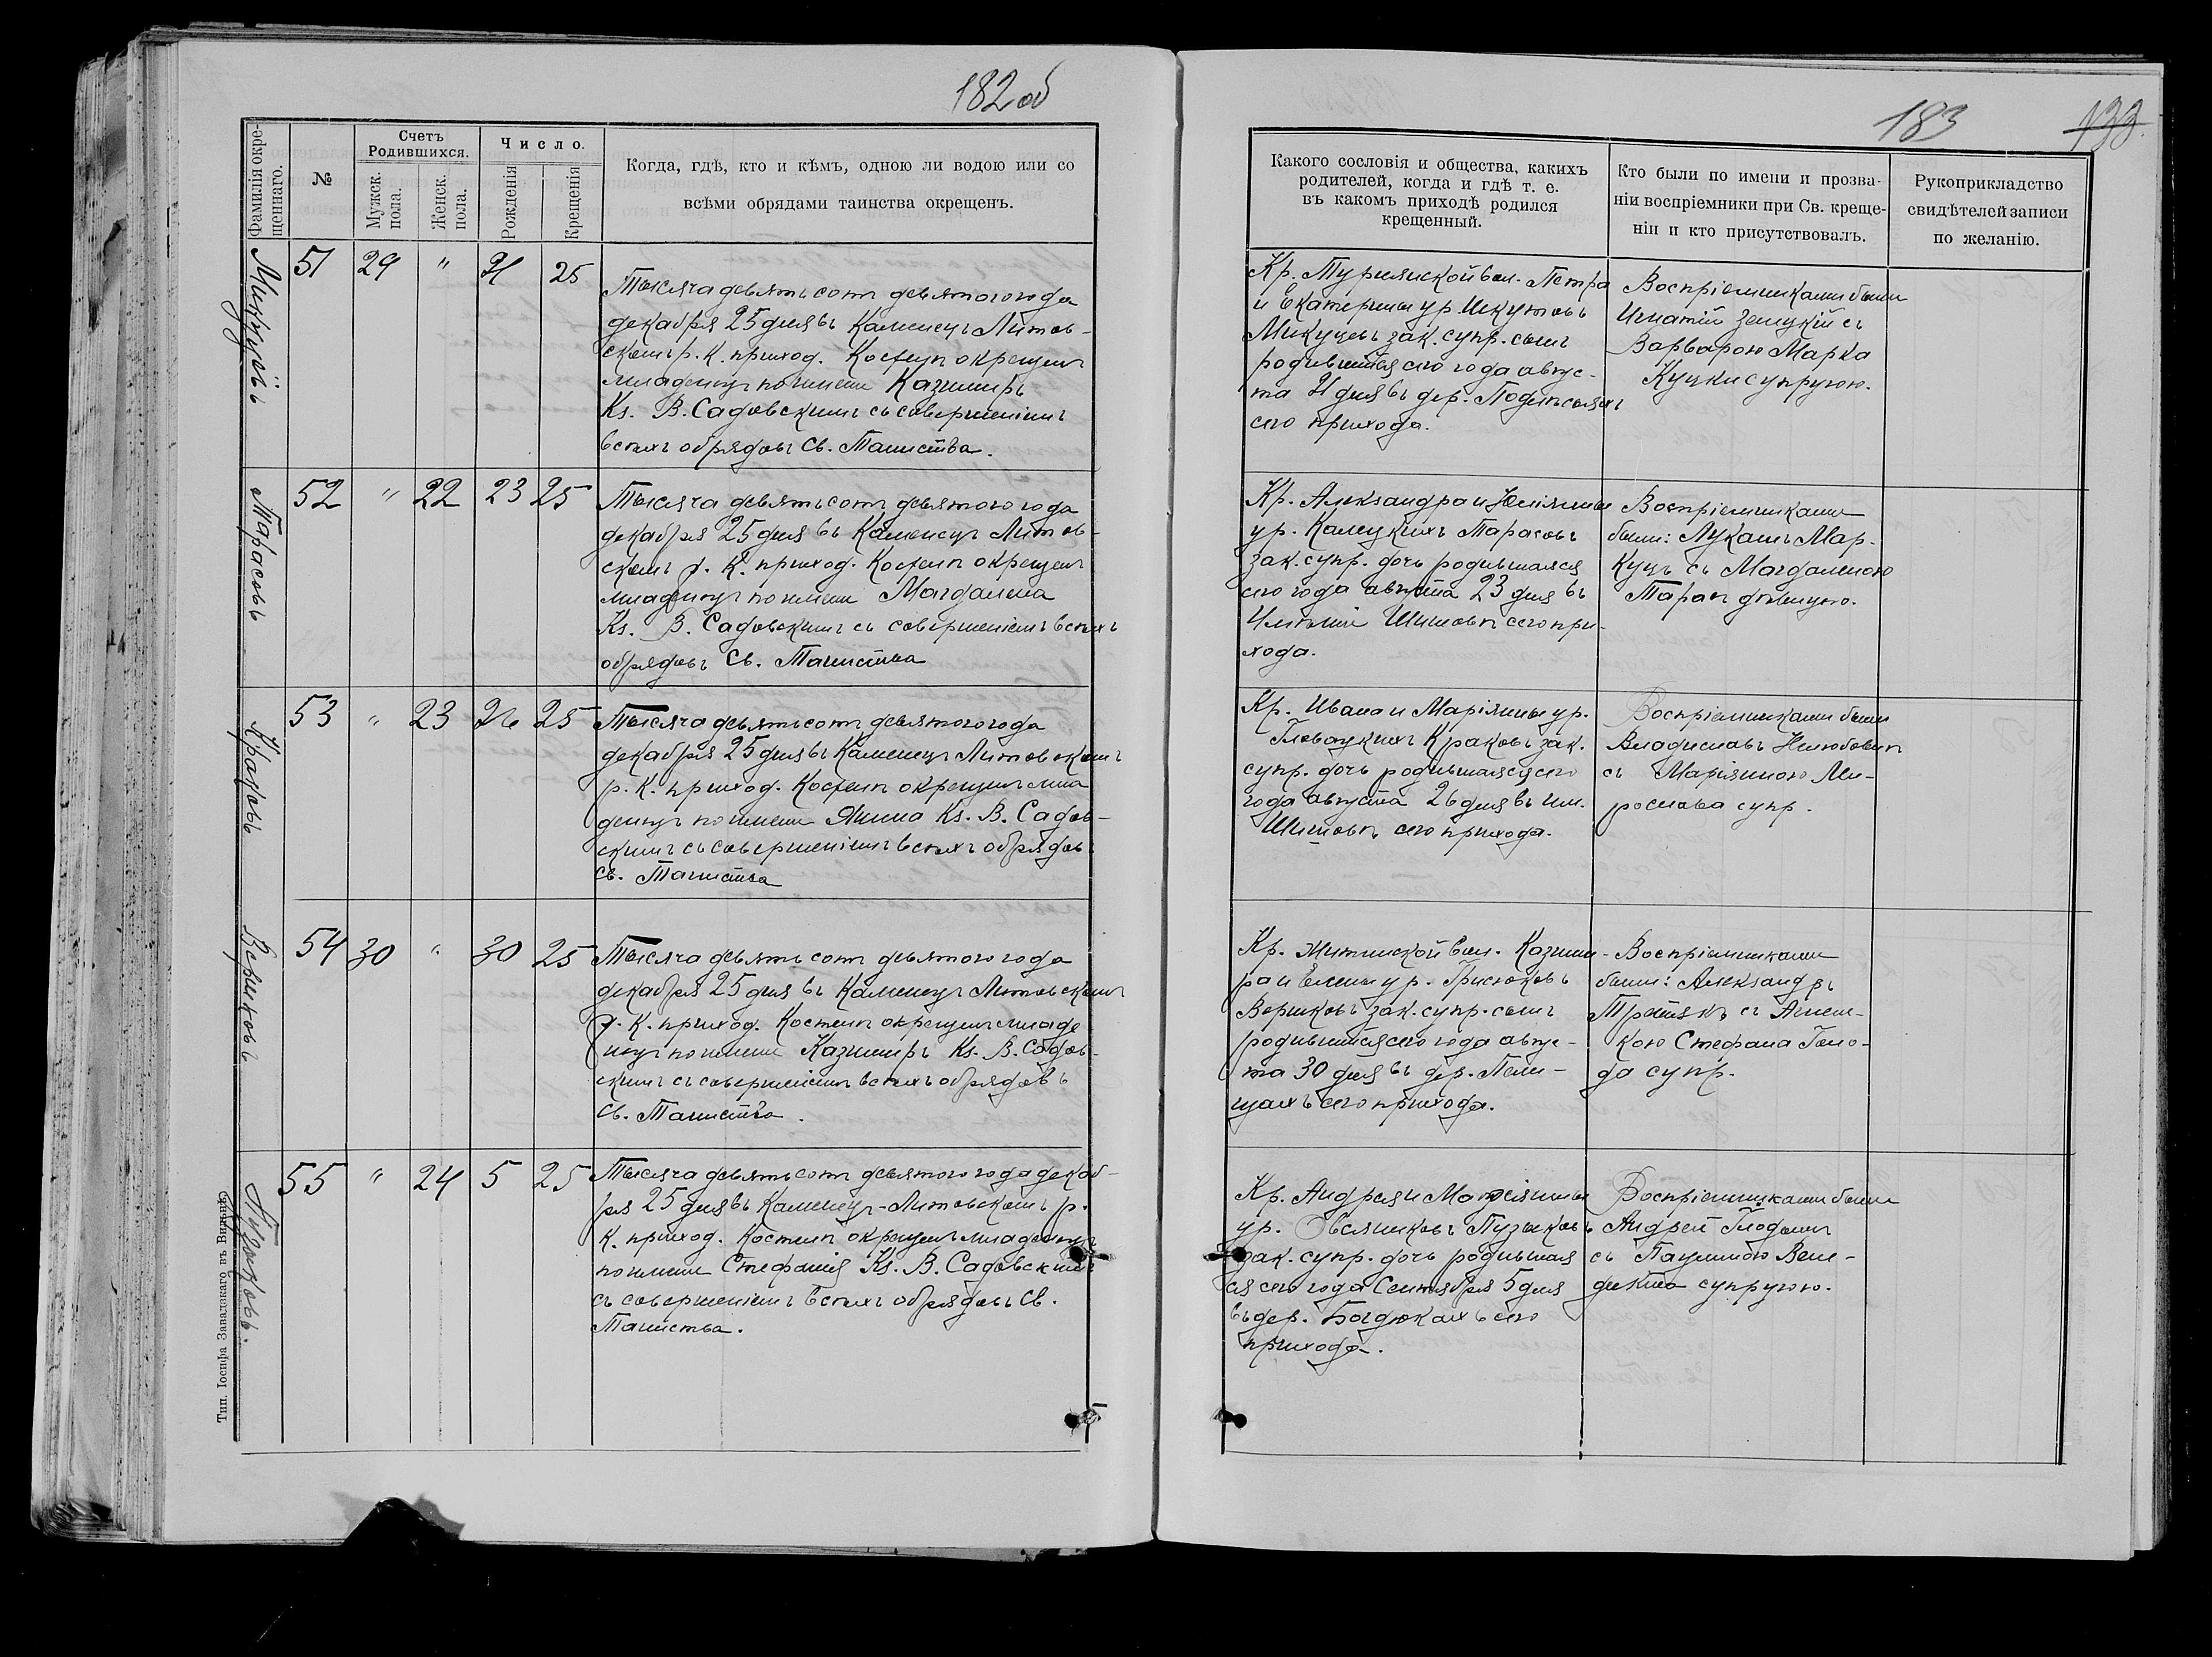 182 об
Фамилія окре-
щеннаго.
№
Счетъ
Родившихся.
Мужск.
пола.
Женск.
пола.
Число.
Рожденія
Крещенія
Когда, гдѣ, кто и кѣмъ, одною ли водою или со
всѣми обрядами таинства окрещенъ.
51 29 " 21 25
Тысяча девятьсотъ девятого года
декабря 25 дня въ Каменецъ Литов-
скомъ р. К. приход. Костелѣ окрещенъ
младенецъ по имени Казимиръ
Кs. В. Садовскимъ съ совершеніемъ
всѣхъ обрядовъ Св. Таинства.
Тарасовъ
52 " 22 23 25
Тысяча девятьсотъ девятого года
декабря 25 дня въ Каменецъ Литов-
скомъ р. К. приход. Костелѣ окрещенъ
младенецъ по имени Магдалена
Кs. В. Садовскимъ съ совершеніемъ всѣхъ
обрядовъ Св. Таинства
53 " 23 26 25
Тысяча девятьсотъ девятого года
декабря 25 дня въ Каменецъ Литовскомъ
р. К. приход. Костелѣ окрещенъ мла
денецъ по имени Янина Кs. В. Садов-
скимъ съ совершеніемъ всѣхъ обрядовъ
Св. Таинства
54 30 " 30 25
Тысяча девятьсотъ девятого года
декабря 25 дня въ Каменецъ Литовскомъ
р. К. приход. Костелѣ окрещенъ младе
нецъ по имени Казимиръ Кs. В. Садов-
скимъ съ совершеніемъ всѣхъ обрядовъ
Св. Таинства.
Пузыковъ.
55 " 24 5 25
Тысяча девятьсотъ девятого года декаб-
ря 25 дня въ Каменецъ-Литовскомъ р.
К. приход. Костелѣ окрещенъ младенецъ
по имени Стефанія Кs. В. Садовскимъ
съ совершеніемъ всѣхъ обрядовъ Св.
Таинства.
Тип. Іосифа Завадзкаго въ Вильнѣ
183 133
Какого сословія и общества, какихъ
родителей, когда и гдѣ т. е.
въ какомъ приходѣ родился
крещенный.
Кто были по имени и прозва-
ніи воспріемники при Св. креще-
ніи и кто присутствовалъ.
Рукоприкладство
свидѣтелей записи
по желанію.
Кр. вол. Петра
и Екатерины ур.
зак. супр. сынъ
родившійся сего года авгус-
та 21 дня въ дер.
сего прихода.
Воспріемниками были
Игнатій съ
Варварою Марка
супругою.
Кр. Александра и Юліянны
ур. Калецкихъ Тарасовъ
зак. супр. дочь родившаяся
сего года августа 23 дня въ
сего при-
хода.
Воспріемниками
были: Лукашъ Мар-
съ Магдаленою
Кр. Ивана и Маріянны ур.
Гловацкихъ Краковъ зак.
супр. дочь родившаяся сего
года августа 26 дня въ им.
сего прихода.
Воспріемниками были
Владиславъ
съ Маріянною Ми-
рослава супр.
Кр. вол. Казими-
ра и Елены ур. Грисюковъ
зак. супр. сынъ
родившійся сего года авгус-
та 30 дня въ дер. Пели-
щахъ сего прихода.
Воспріемниками
были: Александръ
съ
Стефана
супр.
Кр. Андрея и
ур. Овсяниковъ Пузыковъ
зак. супр. дочь родившая
ся сего года Сентября 5 дня
въ дер. Богдюкахъ сего
прихода.
Воспріемниками были
Андрей
съ Паулиною Вене-
дикта супругою.